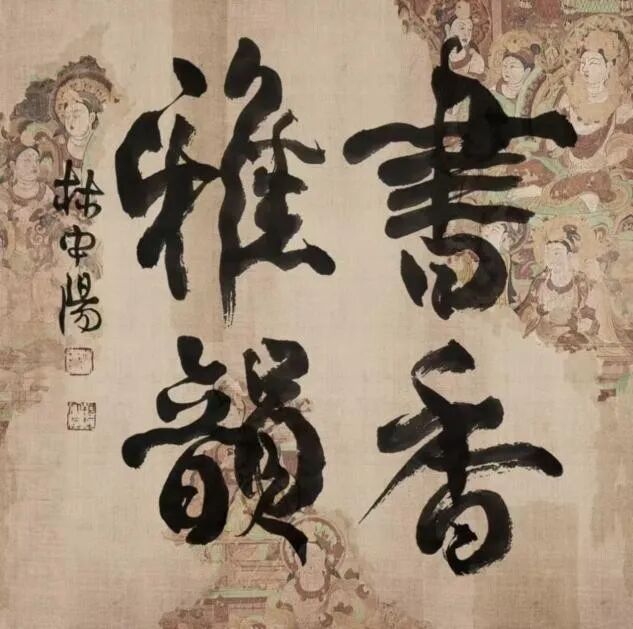 書香
雅韻
林中陽